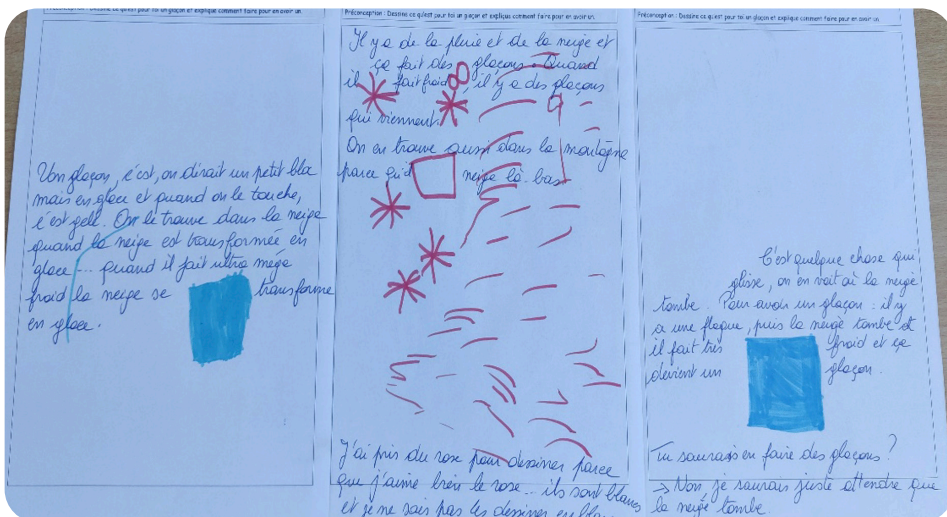 Préconception : Dessine ce qu'est pour toi un glaçon et explique comment faire pour en avoir un.
Un glaçon, c'est, on dirait un petit bla
mais en glace et quand on le touche,
c'est gelé. On le trouve dans la neige
quand la neige est transformée en
glace... quand il fait ultra méga
froid la neige se transforme
en glace.
Préconception : Dessine ce qu'est pour toi un glaçon et explique comment faire pour en avoir un.
Il y a de la pluie et de la neige et
ça fait des glaçons. Quand
il fait froid, il y a des glaçons
qui viennent.
On en trouve aussi dans la montagne
parce qu'il neige là-bas
J'ai pris du rose pour dessiner parce
que j'aime bien le rose.. ils sont blancs
et je ne sais pas les dessiner en
Préconception : Dessine ce qu'est pour toi un glaçon et explique comment faire pour en avoir un.
C'est quelque chose qui
glisse, on en voit où la neige
tombe. Pour avoir un glaçon : il y
a une flaque, puis la neige tombe et
il fait très froid et ça
devient un glaçon.
Tu saurais en faire des glaçons ?
→ Non je saurais juste attendre que
la neige tombe.